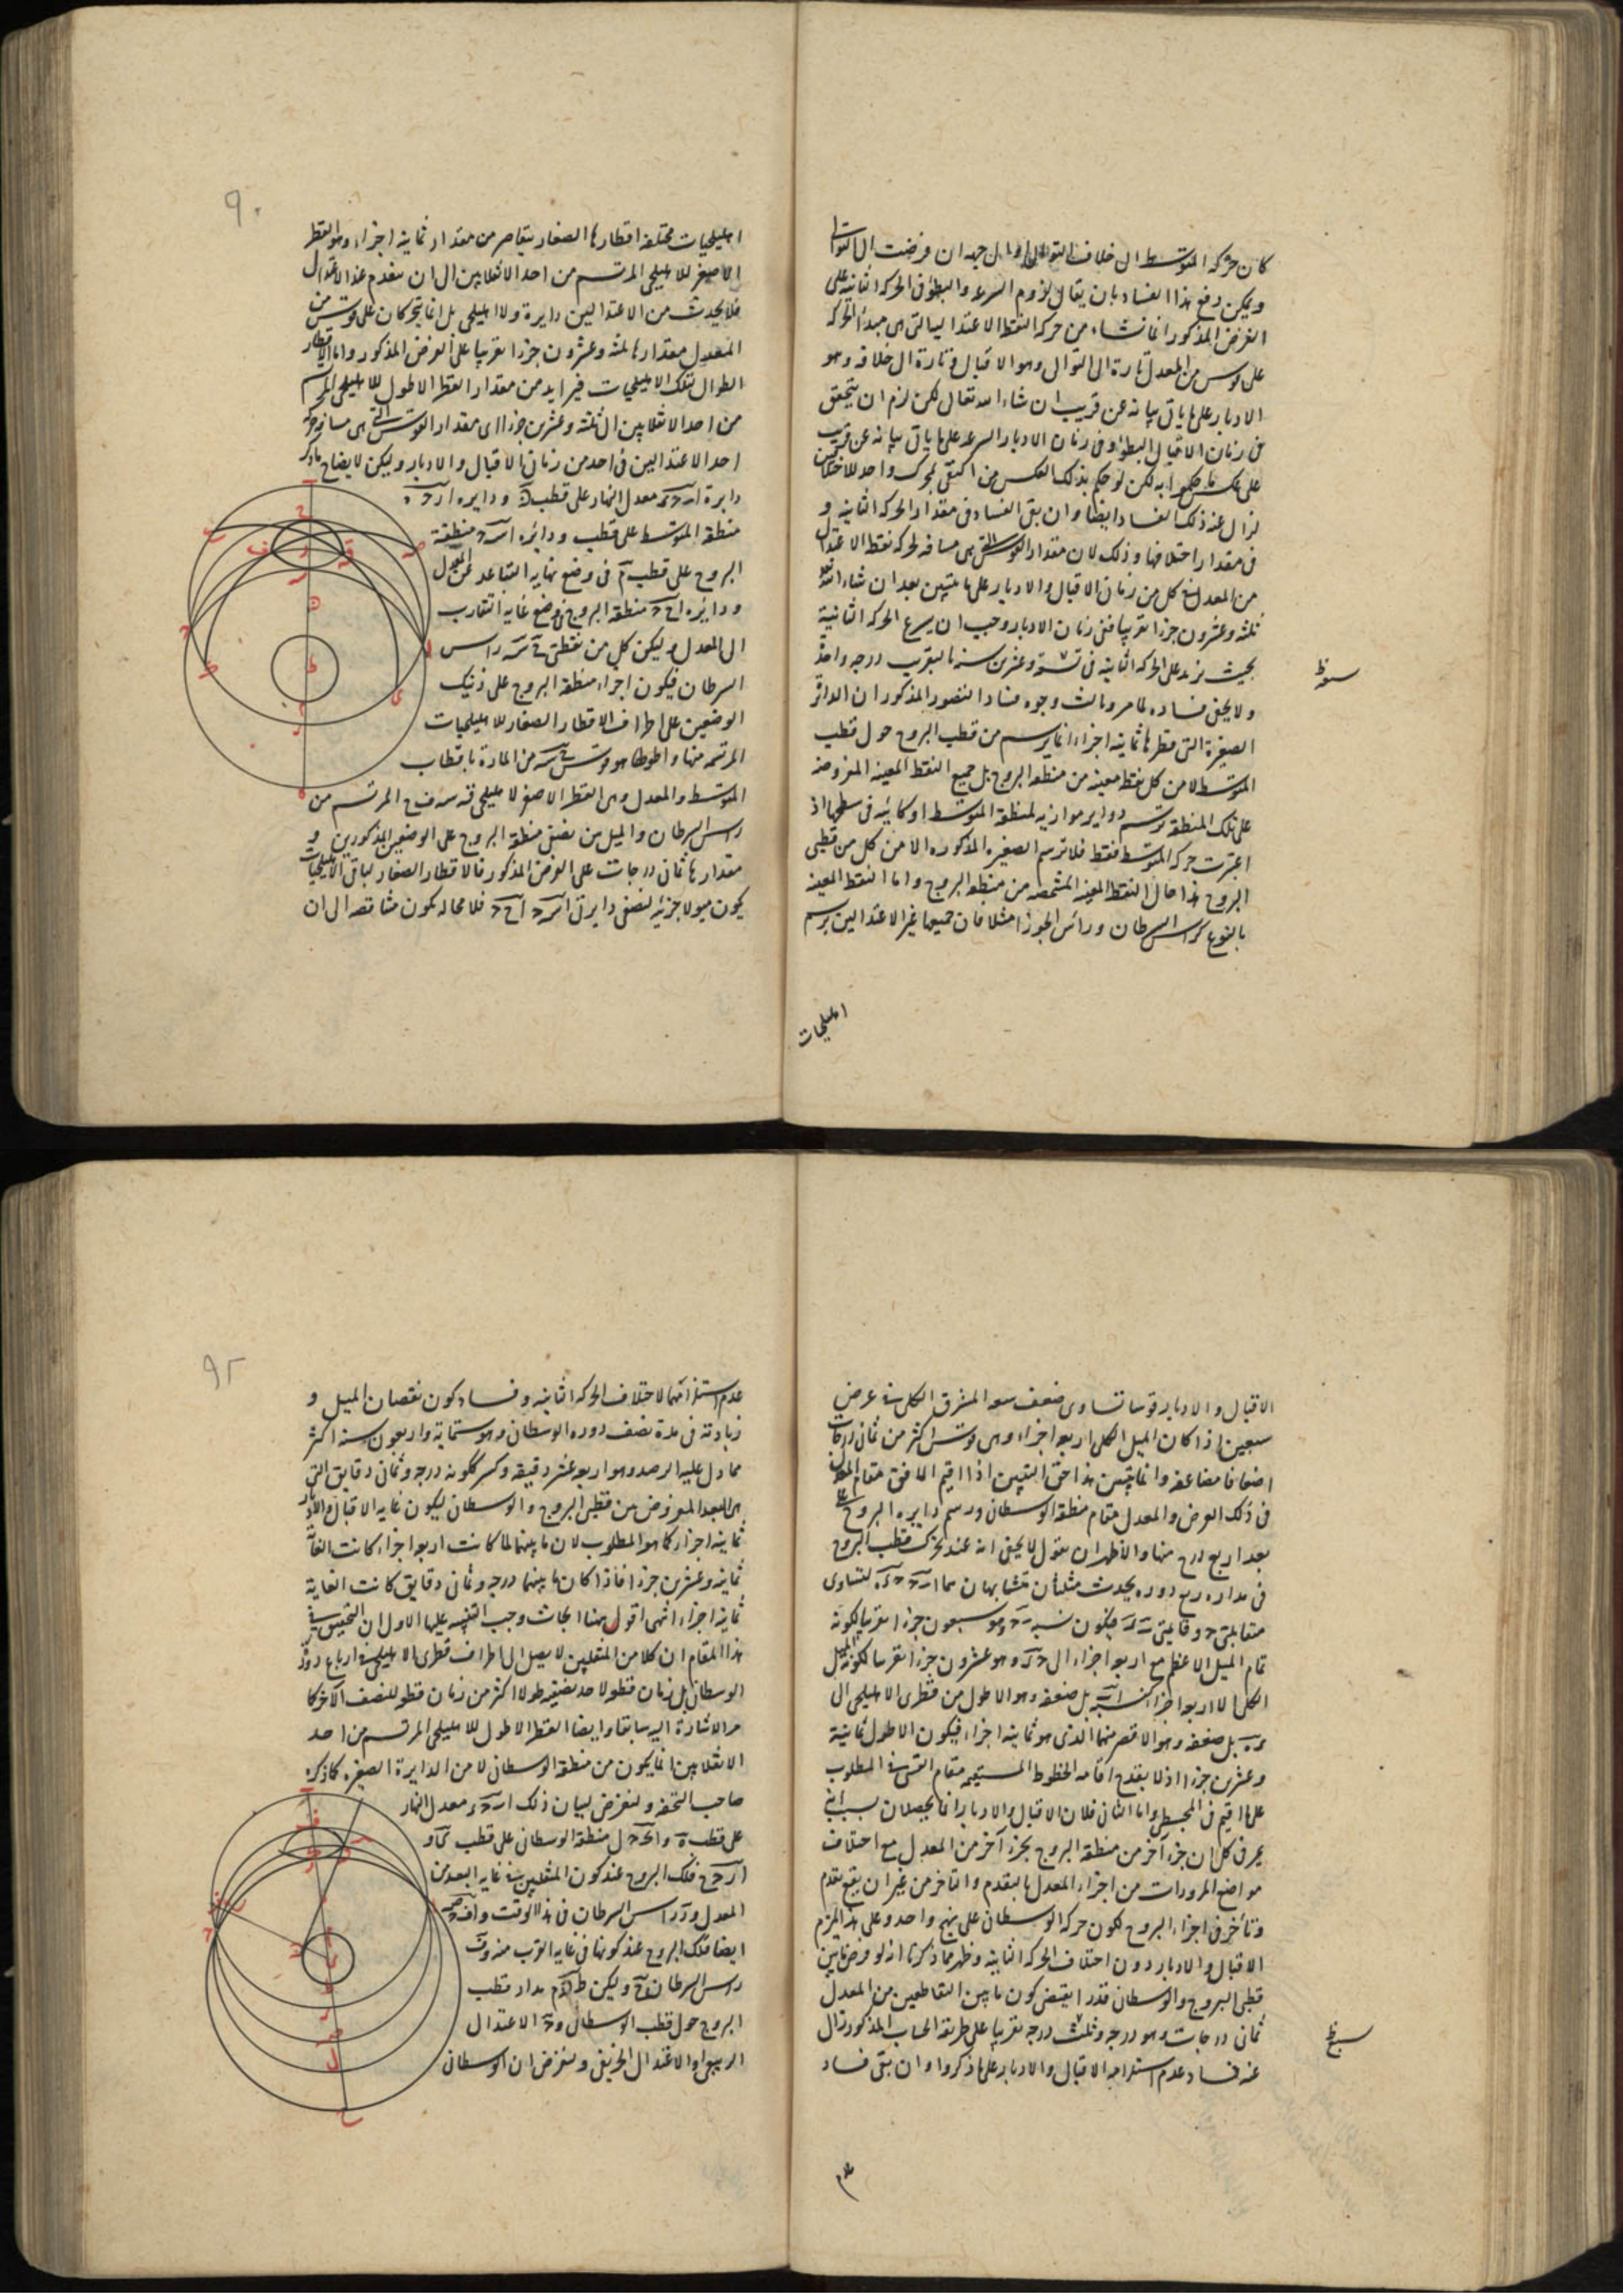 كان حركة المتوسط الى خلاف التوالى او الى جهة ان فرضت الى التوالى
ويمكن دفع هذا الفساد بان يقال لزوم السرعة والبطؤ فى الحركة الثانية على
الفرض المذكور انما نشاء من حركة النقط الاعتدالية التى هى مبدأ الحركة
على قوس من المعدل تارة الى التوالى وهو الاقبال وتارة الى خلافه وهو
الادبار على ما ياتى بيانه عن قريب ان شاء الله تعالى لكن لزم ان يتحقق
فى زمان الاقبال البطؤ وفى زمان الادبار السرعة على ما ياتى بيانه عن قريب
على عكس ما حكموا به لكن لو حكم بذلك العكس من اكتفى بمحرك واحد للاختلافين
لزال عنه ذلك الفساد ايضا وان بقى الفساد فى مقدار الحركة الثانية و
فى مقدار اختلافها وذلك لان مقدار القوس التى هى مسافة لحركة نقط الاعتدال
من المعدل فى كل من زمان الاقبال والادبار على ما يتبين بعد ان شاء الله تعالى
ثلثة وعشرون جزءا تقريبا ففى زمان الادبار وجب ان يسرع الحركة الثانية
بحيث يزيد على الحركة الثابتة فى تسعة وعشرين سنة بالتقريب درجة واحدة
ولا يخفى فساده لما مر وثالث وجوه فساد التصور المذكور ان الدائرة
الصغيرة التى قطرها ثمانية اجزاء انما يرسم من قطب البروج حول قطب
المتوسط لا من كل نقطة معينة من منطقة البروج بل جميع النقط المعينة المفروضة
على تلك المنطقة ترسم دواير موازية لمنطقة المتوسط او كائنة فى سطحها اذ
اعتبرت حركة المتوسط فقط فلا ترسم الصغيرة المذكورة الا من كل من قطبى
البروج هذا حال النقط المعينة المشخصة من منطقة البروج واما النقط المعينة
بالنوع كراس السرطان وراس الجوزا مثلا فان جميعها غير الاعتدالين يرسم
اهليلجيات
٩٠
اهليلجيات مختلفة اقطارها الصغار يتقاصر من مقدار ثمانية اجزاء وهو القطر
الاصغر للاهليلجى المرتسم من احد الانقلابين الى ان ينعدم عند الاعتدال
فلا يحدث من الاعتدالين دايرة ولا اهليلجى بل انما يتحركان على قوس من
المعدل مقدارها ثلثة وعشرون جزءا تقريبا على الفرض المذكور واما الاقطار
الطوال لتلك الاهليلجيات فيزايد من مقدار القطر الاطول للاهليلجى المرتسم
من احد الانقلابين الى الثلثة وعشرين جزءا اى مقدار القوس التى هى مسافة حركة
احد الاعتدالين فى احد من زمانى الاقبال والادبار وليكن لايضاح ما ذكر
منطقة المتوسط على قطب
البروج على قطب م فى وضع نهاية التباعد عن المعدل
منطقة البروج فى وضع غاية التقارب
الى المعدل وليكن كل من نقطتى راس
السرطان فيكون اجزاء منطقة البروج على ذينك
الوضعين على اطراف الاقطار الصغار للاهليلجيات
المرتسمة منها واطولها هو قوس من المارة باقطاب
المتوسط والمعدل وهى القطر الاصغر لاهليلجى المرتسم من
راس السرطان والميل بين نصفى منطقة البروج على الوضعين المذكورين و
مقدارها ثمانى درجات على الفرض المذكور فالاقطار الصغار لباقى الاهليلجيات
يكون ميولا جزئية لنصفى دايرتى فلا محالة يكون متناقصة الى ان
الاقبال والادبار قوسا تساوى ضعف سعة المشرق الكلى فى عرض
سبعين اذا كان الميل الكلى اربعة اجزاء وهى قوس اكثر من ثمانى درجات
اضعافا مضاعفة وانما يتبين هذا حق التبيين اذا اقيم الافق مقام المعدل
فى ذلك العرض والمعدل مقام منطقة الوسطانى ورسم دايرة البروج على
بعد اربع درج منها والاظهر ان نقول لا يخفى انه عند تحرك قطب البروج
فى مداره ربع دورة يحدث مثلثان متشابهان هما لتساوى
تمام الميل الاعظم مع اربعة اجزاء الى وهو عشرون جزءا تقريبا لكونه الميل
الكلى الا اربعة اجزاء كنسبة بل ضعفه وهو الاطول من قطرى الاهليلجى الى
بل ضعفه وهو الاقصر منهما الذى هو ثمانية اجزاء فيكون الاطول ثمانية
وعشرين جزءا اذ لا يقدح اقامة الخطوط المستقيمة مقام القسى فى المطلوب
على ما اقيم فى المجسطى واما الثانى فلان الاقبال والادبار انما يحصلان بسبب انه
يمر فى كل آن جزء آخر من منطقة البروج بجزء آخر من المعدل مع اختلاف
مواضع المرورات من اجزاء المعدل بالتقدم والتاخر من غير ان يقع تقدم
وتأخر فى اجزاء البروج لكون حركة الوسطانى على نهج واحد وعلى هذا يلزم
الاقبال والادبار دون اختلاف الحركة الثانية وظهر مما ذكرنا انه لو فرض ما بين
قطبى البروج والوسطانى قدرا يقتضى كون ما بين التقاطعين من المعدل
ثمانى درجات وهو درجة وثلث درجة تقريبا على طريقة الحساب المذكور لزال
عنه فساد عدم استلزامه الاقبال والادبار على ما ذكروا وان بقى فساد
عدم
٩٢
عدم استلزامهما لاختلاف الحركة الثانية وفساد كون نقصان الميل و
زيادته فى مدة نصف دورة الوسطانى وهو ستماية واربعون سنة اكثر
مما دل عليه الرصد وهو اربعة عشر دقيقة وكسر لكونه درجة وثمانى دقايق التى
هى البعد المفروض بين قطبى البروج والوسطانى ليكون غاية الاقبال والادبار
ثمانية اجزاء كما هو المطلوب لان ما بينهما لما كانت اربعة اجزاء كانت الغاية
ثمانية وعشرين جزءا فاذا كان ما بينهما درجة وثمانى دقايق كانت الغاية
ثمانية اجزاء انتهى اقول ههنا ابحاث وجب التنبيه عليها الاول ان التحقيق فى
هذا المقام ان كلا من المنقلبين لا يصل الى اطراف قطرى الاهليلجى فى ارباع دورة
الوسطانى بل زمان قطعه لاحد نصفيه طولا اكثر من زمان قطعه للنصف الآخر كما
مر الاشارة اليه سابقا وايضا القطر الاطول للاهليلجى المرتسم من احد
الانقلابين انما يكون من منطقة الوسطانى لا من الدايرة الصغيرة كما ذكره
صاحب التحفة ولنفرض لبيان ذلك معدل النهار
على قطب منطقة الوسطانى على قطب
فلك البروج عند كون المنقلبين فى غاية البعد من
المعدل راس السرطان فى هذا الوقت
ايضا فلك البروج عند كونها فى غاية القرب منه وقت
راس السرطان وليكن مدار قطب
البروج حول قطب الوسطانى الاعتدال
الربيعى او الاعتدال الخريفى ولنفرض ان الوسطانى